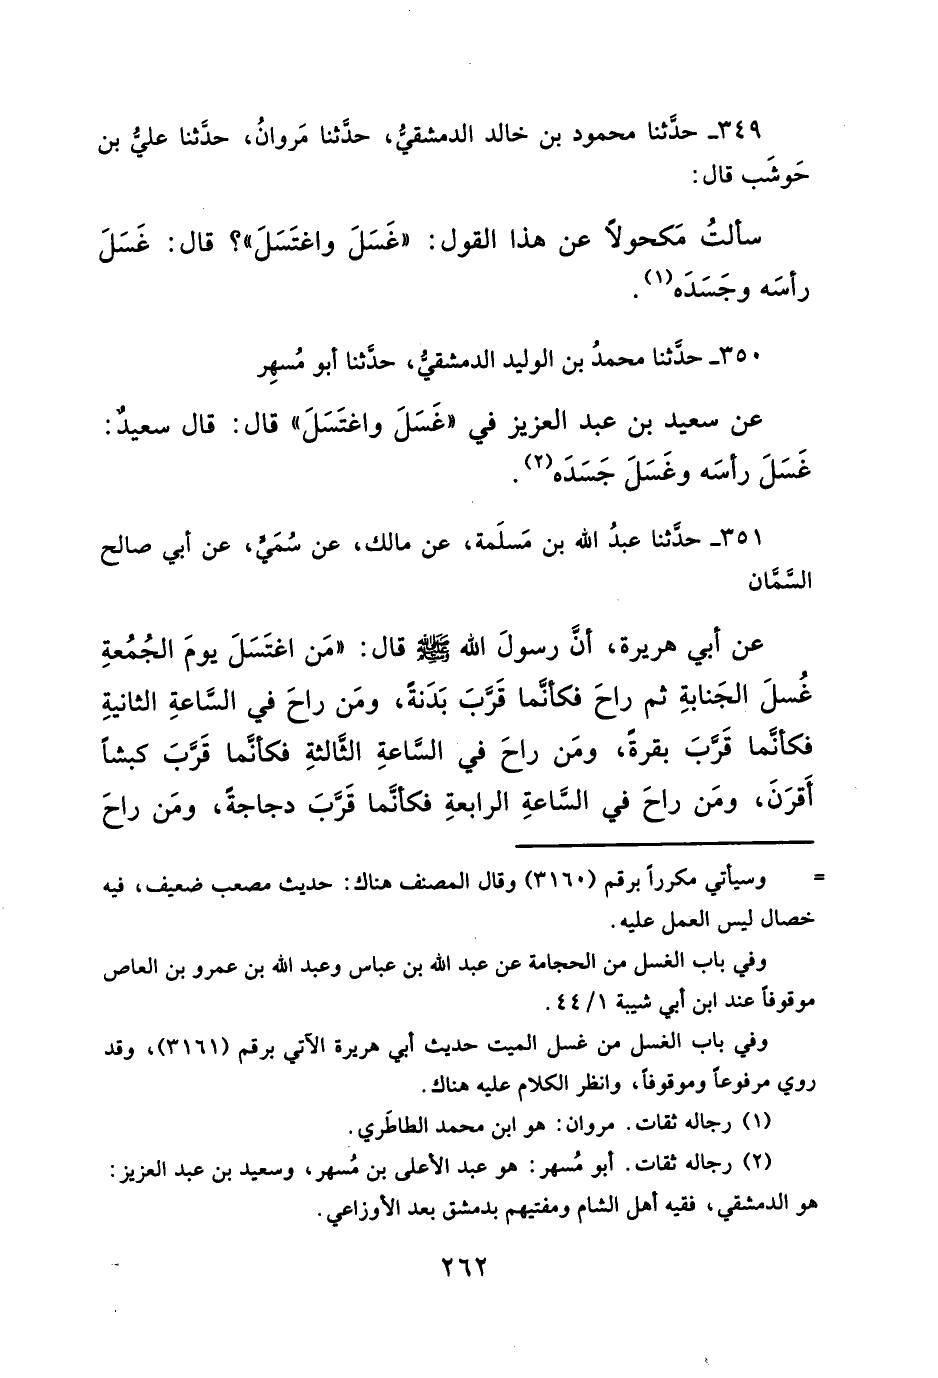 ٣٤٩ـ حدَّثنا محمود بن خالد الدمشقيُّ، حدَّثنا مَروانُ، حدَّثنا عليُّ بن
حَوشَب قال:
سألتُ مَكحولاً عن هذا القول: «غَسَلَ واغتَسَلَ»؟ قال: غَسَلَ
رأسَه وجَسَدَه(١).
٣٥٠ـ حدَّثنا محمدُ بن الوليد الدمشقيُّ، حدَّثنا أبو مُسهِر
عن سعيد بن عبد العزيز في «غَسَلَ واغتَسَلَ» قال: قال سعيدٌ:
غَسَلَ رأسَه وغَسَلَ جَسَدَه(٢).
٣٥١ـ حدَّثنا عبدُ الله بن مَسلَمة، عن مالك، عن سُمَيٍّ، عن أبي صالح
السَّمَّان
عن أبي هريرة، أنَّ رسولَ الله ﷺ قال: «مَن اغتَسَلَ يومَ الجُمُعةِ
غُسلَ الجَنابةِ ثم راحَ فكأنَّما قَرَّبَ بَدَنةً، ومَن راحَ في السَّاعةِ الثانيةِ
فكأنَّما قَرَّبَ بقرةً، ومَن راحَ في السَّاعةِ الثَّالثةِ فكأنَّما قَرَّبَ كبشاً
أَقرَنَ، ومَن راحَ في السَّاعةِ الرابعةِ فكأنَّما قَرَّبَ دجاجةً، ومَن راحَ
= وسيأتي مكرراً برقم (٣١٦٠) وقال المصنف هناك: حديث مصعب ضعيف، فيه
خصال ليس العمل عليه.
وفي باب الغسل من الحجامة عن عبد الله بن عباس وعبد الله بن عمرو بن العاص
موقوفاً عند ابن أبي شيبة ١/ ٤٤.
وفي باب الغسل من غسل الميت حديث أبي هريرة الآتي برقم (٣١٦١)، وقد
روي مرفوعاً وموقوفاً، وانظر الكلام عليه هناك.
(١) رجاله ثقات. مروان: هو ابن محمد الطاطَري.
(٢) رجاله ثقات. أبو مُسهر: هو عبد الأعلى بن مُسهر، وسعيد بن عبد العزيز:
هو الدمشقي، فقيه أهل الشام ومفتيهم بدمشق بعد الأوزاعي.
٢٦٢